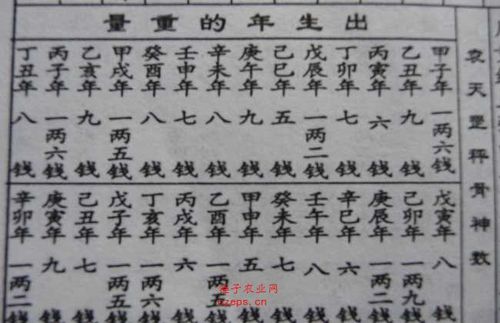 袁天罡秤骨神数
出生年的重量
甲子年 一两六錢
乙丑年 九錢
丙寅年 六錢
丁卯年 七錢
戊辰年 一两二錢
己巳年 五錢
庚午年 九錢
辛未年 八錢
壬申年 七錢
癸酉年 八錢
甲戌年 一两五錢
乙亥年 九錢
丙子年 一两六錢
丁丑年 八錢
戊寅年 八
己卯年 一两九
庚辰年 一两二
辛巳年 六
壬午年 八
癸未年 七
甲申年 五
乙酉年 一两五
丙戌年 六
丁亥年 一两六
戊子年 一两五
己丑年 七
庚寅年 九
辛卯年 一两二
子农业网